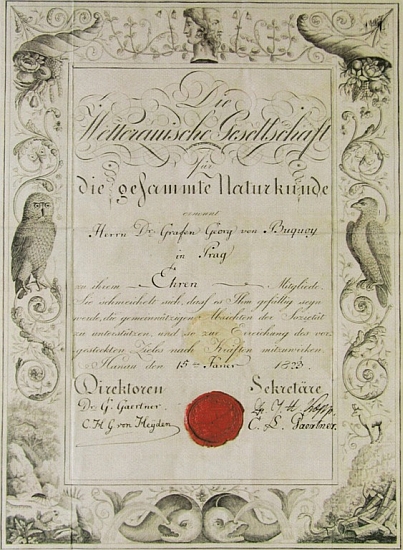 Die
Wetterauische Gesellschaft
für
die gesammte Naturkunde
ernennt
Herrn Dr. Grafen Georg von Buquoy
in Prag
zu ihrem Ehren Mitgliede.
Sie schmeichelt sich, dass es Ihm gefällig seyn
werde, die gemeinnützigen Absichten der Societät
zu unterstützen, und sie zur Erreichung des vor-
gesteckten Zieles nach Kräften mitzuwirken.
Hanau den 15ten
Direktoren Sekretäre
Dr. G. Gaertner Kopp
C. H. G. von Heyden C. L. Gaertner